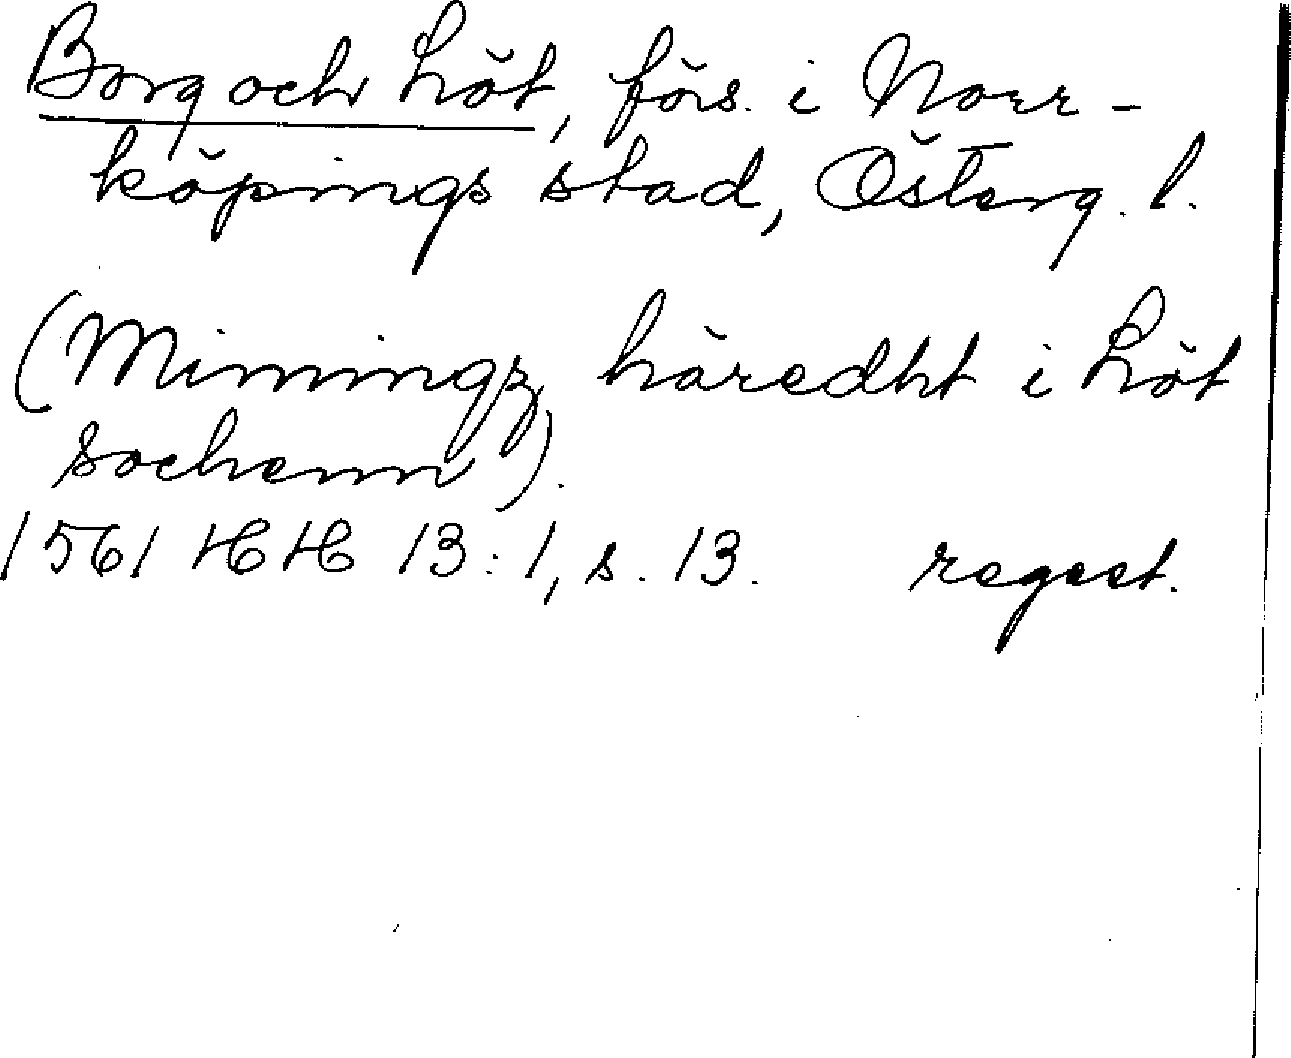 Borg och Löt, förs. i Norr-
köpings stad, Österg. l.
(Mimingz häredht i Löt
sochenn).
1561 HH 13:1, s. 13. regest.